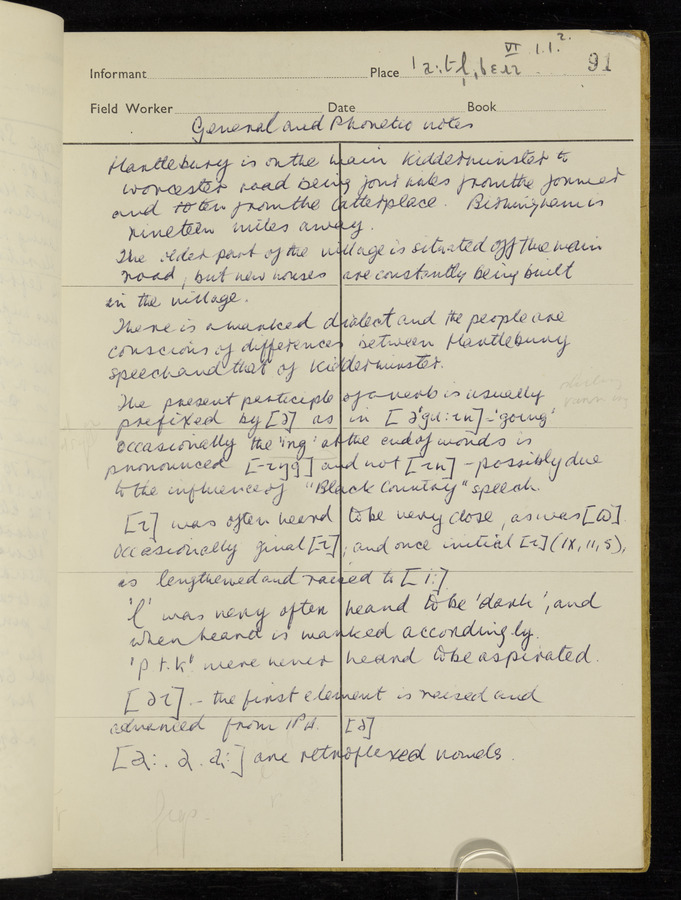 VI 1.1.2.
91
Informant Place
Field Worker Date Book
General and Phonetic notes
Hartlebury is on the main Kidderminster to
Worcester road being four miles from the former
and ten from the latter place. Birmingham is
nineteen miles away.
The older part of the village is situated off the main
road, but new houses are constantly being built
in the village.
There is a marked dialect and the people are
conscious of differences between Hartlebury
speech and that of Kidderminster.
The present participle of a verb is usually
prefixed by [ə] as in [ə'gu:ɪn] - 'going'
Occasionally the 'ing' at the end of words is
pronounced [-ɪŋg] and not [-ɪn] - possibly due
to the influence of "Black Country" speech.
[ɪ] was often heard to be very close, as was [ɷ].
Occasionally final [ɪ], and once initial [ɪ] (IX, 11, 5),
is lengthened and raised to [i:]
'l' was very often heard to be 'dark', and
when heard is marked accordingly.
'p t k' were never heard to be aspirated.
[əɪ] - the first element is raised and
advanced from IPA [ə]
are retroflexed vowels.